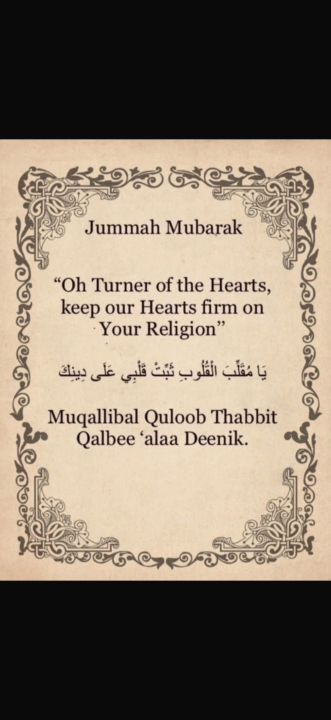 Jummah Mubarak
“Oh Turner of the Hearts,
keep our Hearts firm on
Your Religion”
يَا مُقَلِّبَ الْقُلُوبِ ثَبِّتْ قَلْبِي عَلَى دِينِكَ
Muqallibal Quloob Thabbit
Qalbee ‘alaa Deenik.